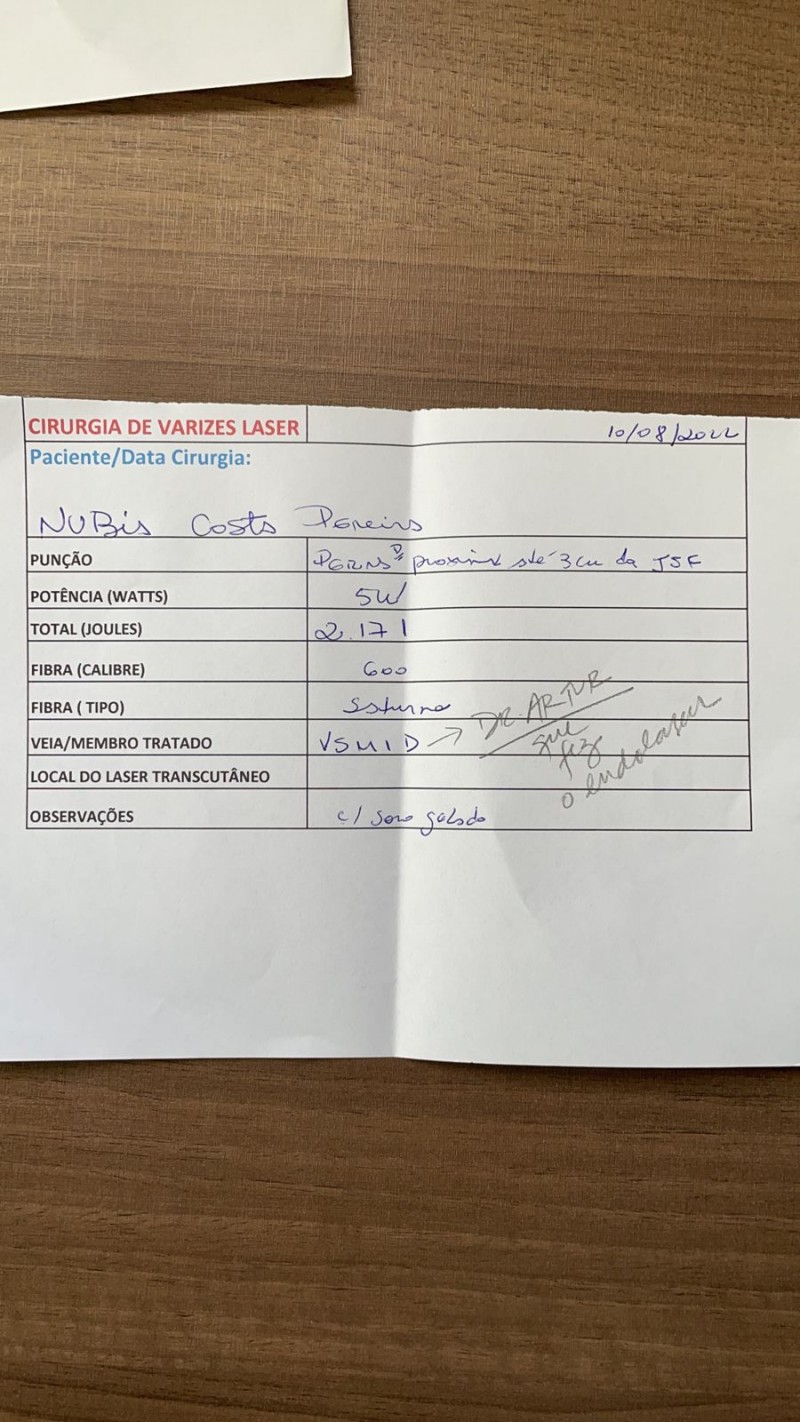 CIRURGIA DE VARIZES LASER 10/08/2022
Paciente/Data Cirurgia:
NUBia Costa Pereira
PUNÇÃO PERNA D proximal até 3cm da JSF
POTÊNCIA (WATTS) 5W
TOTAL (JOULES) 2.171
FIBRA (CALIBRE) 600
FIBRA ( TIPO)
VEIA/MEMBRO TRATADO VSMID → DR. ARTUR
que
fez
o endolaser
LOCAL DO LASER TRANSCUTÂNEO
OBSERVAÇÕES c/ soro gelado